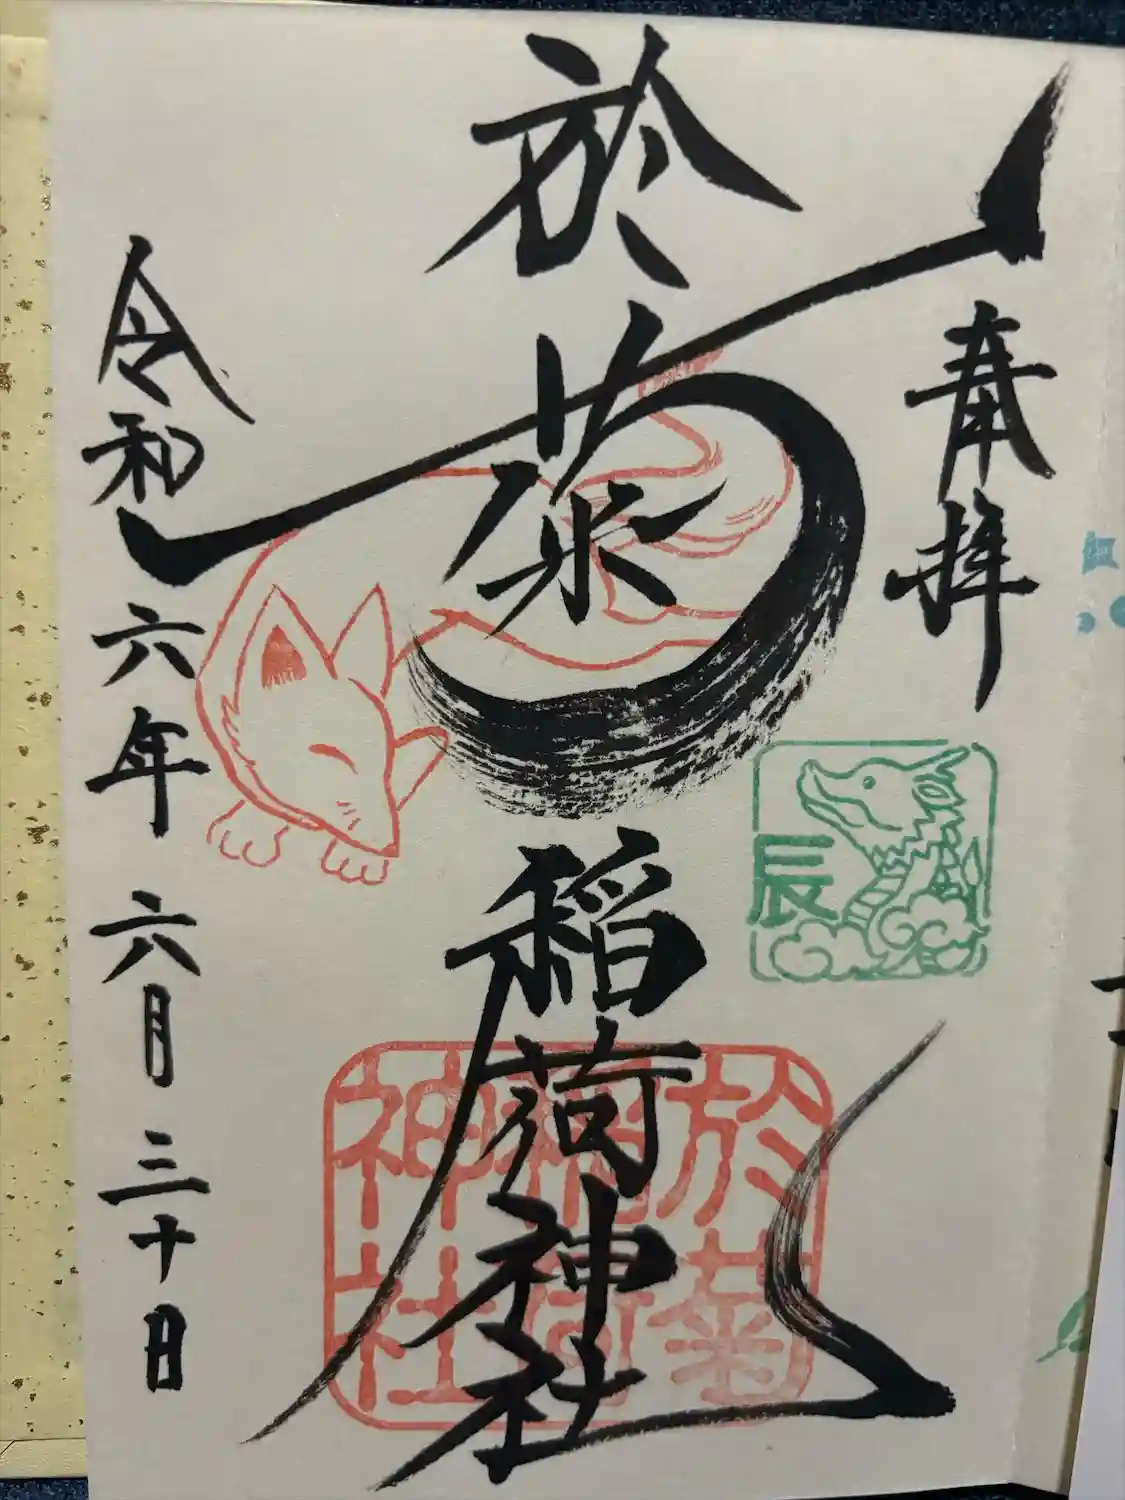 奉拝
於菊稲荷神社
令和六年六月三十日
辰
於菊
稲荷
神社